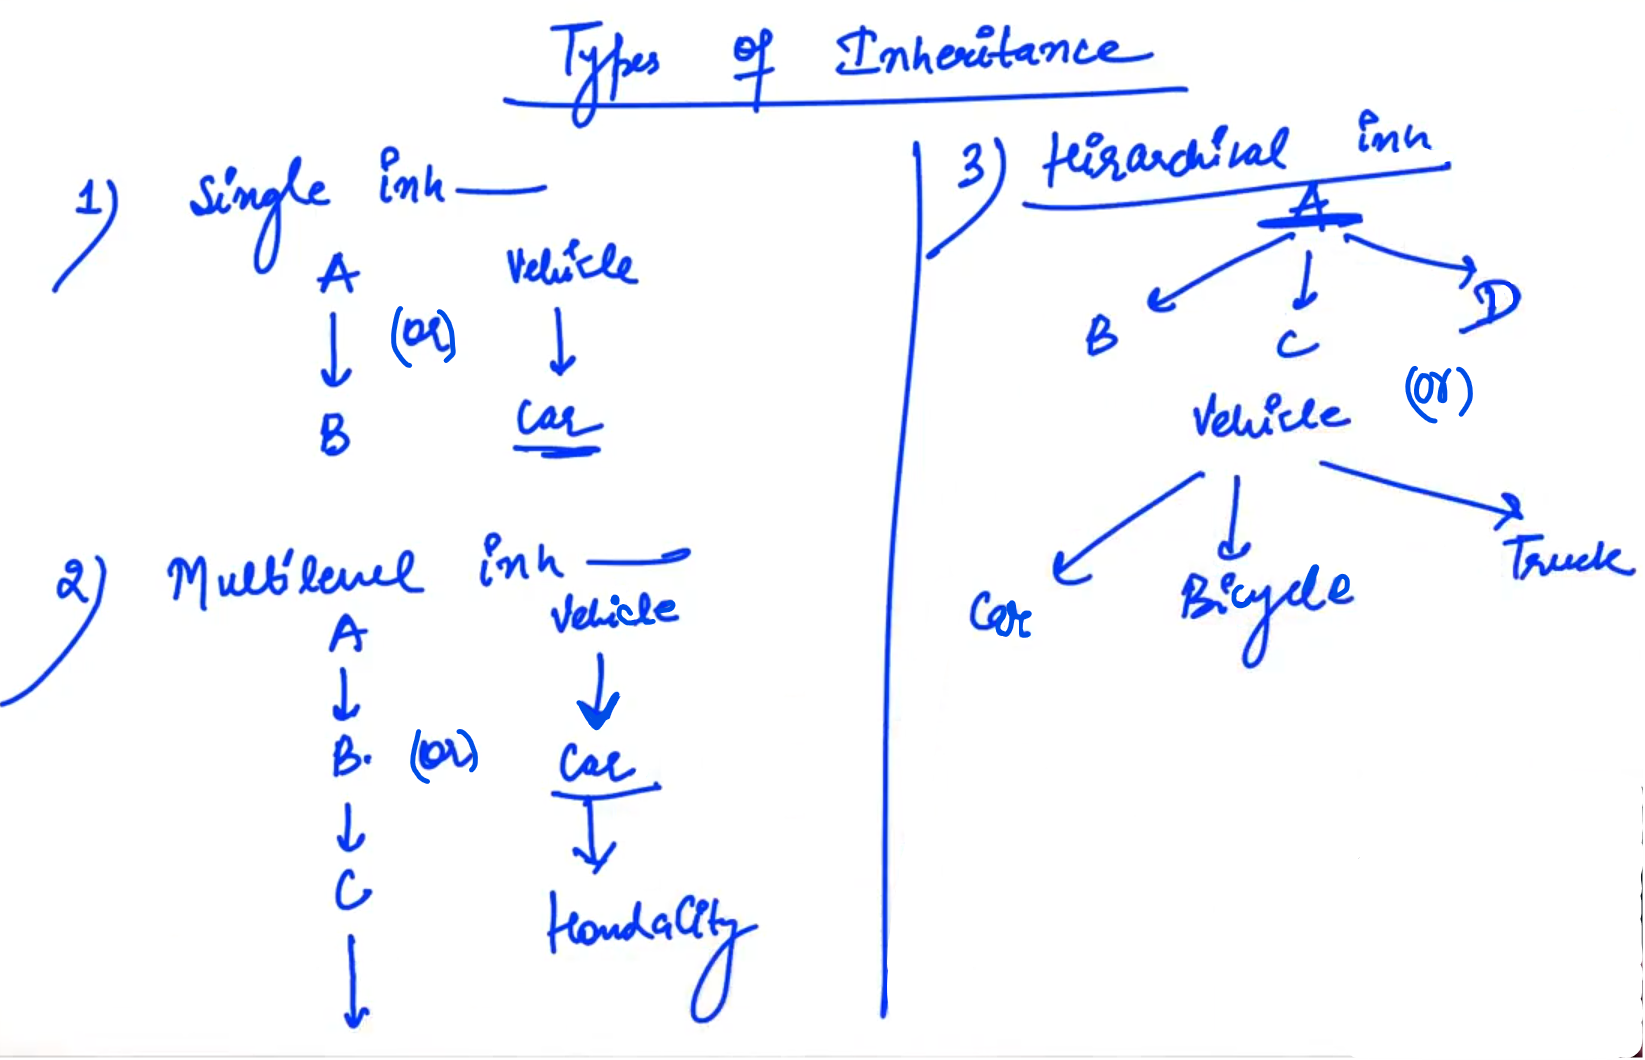 Types of Inheritance
1) Single inh
A
(or)
B
Vehicle
Car
2) Multilevel inh
A
B. (or)
C
Vehicle
Car
HondaCity
3) Hirarchical inh
A
B C D
(or)
Vehicle
Car Bicycle Truck